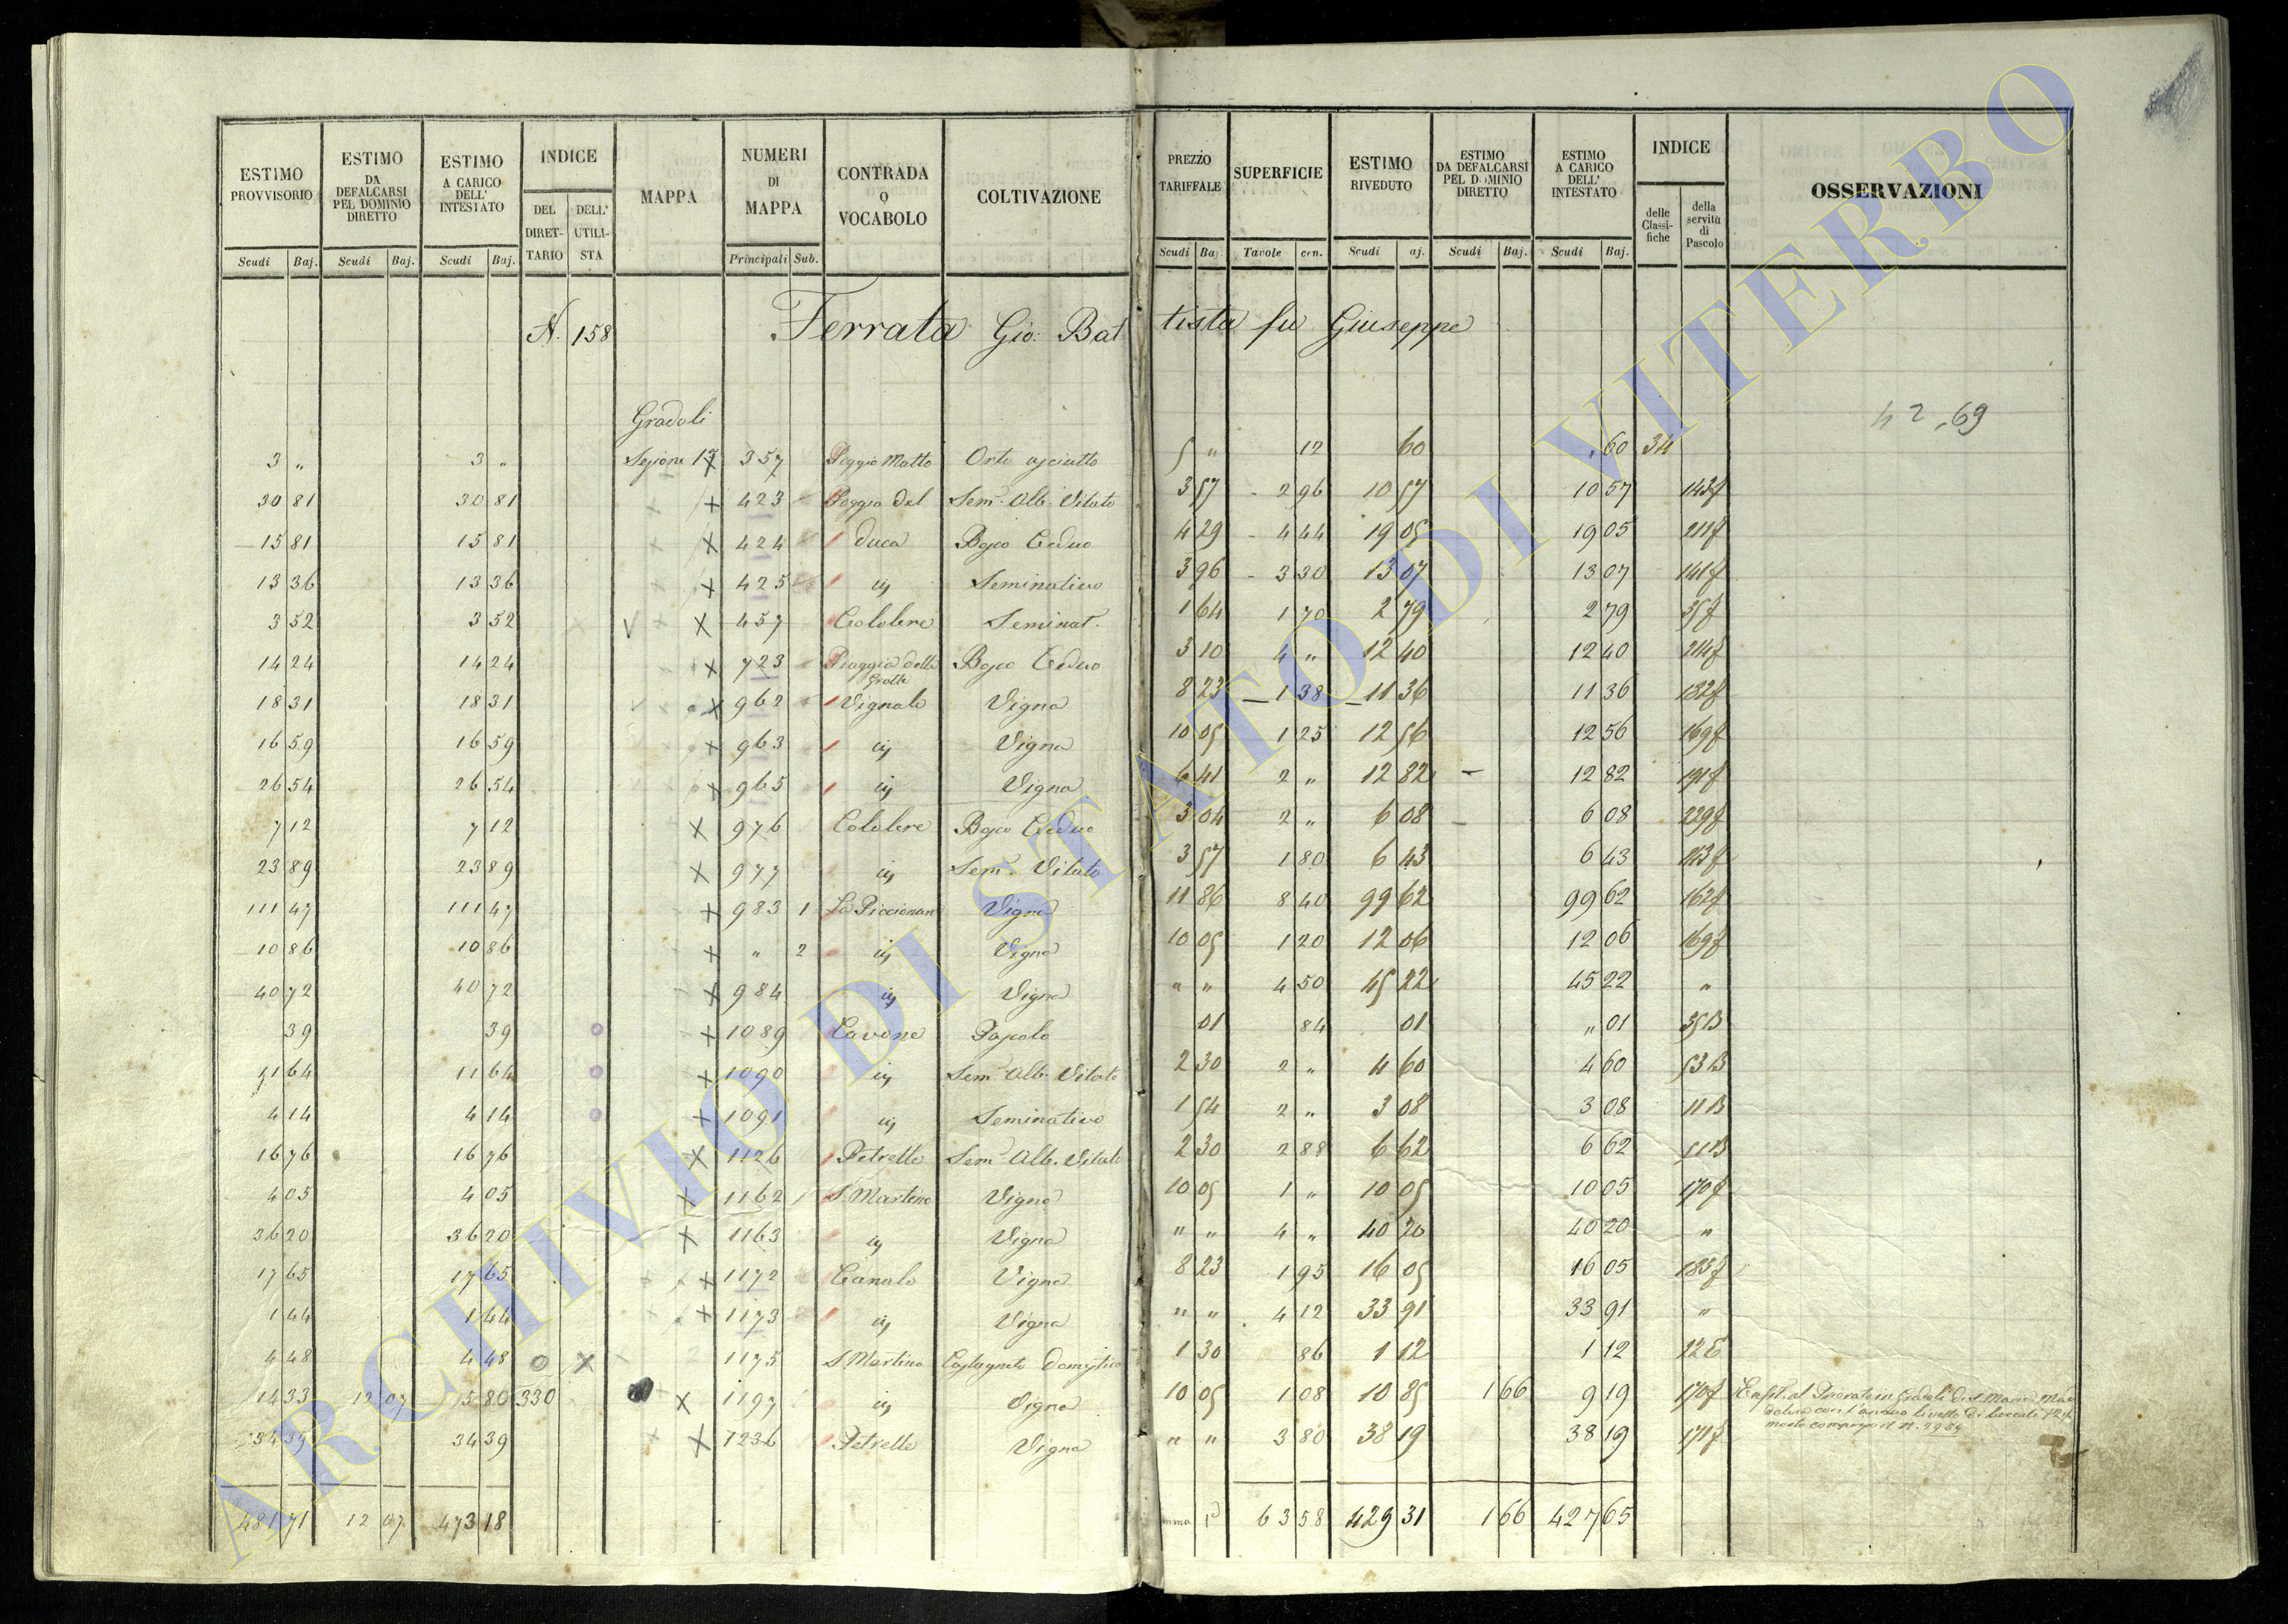 ESTIMO PROVVISORIO | ESTIMO DA DEFALCARSI PEL DOMINIO DIRETTO | ESTIMO A CARICO DELL' INTESTATO | INDICE | MAPPA | NUMERI DI MAPPA | CONTRADA O VOCABOLO | COLTIVAZIONE | PREZZO TARIFFALE | SUPERFICIE | ESTIMO RIVEDUTO | ESTIMO DA DEFALCARSI PEL DOMINIO DIRETTO | ESTIMO A CARICO DELL' INTESTATO | INDICE | OSSERVAZIONI
DEL DIRET-TARIO | DELL' UTILI-STA | delle Classi-fiche | della servitù di Pascolo
Scudi | Baj. | Scudi | Baj. | Scudi | Baj. | Principali | Sub. | Scudi | Baj | Tavole | cen. | Scudi | aj. | Scudi | Baj. | Scudi | Baj.
N. 158 Ferrata Gio: Battista fu Giuseppe
Gradoli
42,69
3 " | 3 " | Sezione 1ª | 357 | Poggio Matto | Orto asciutto | 5 " | 12 | 60 | " 60 | 34
30 81 | 30 81 | X | 423 | Poggio del | Sem. Alb. Vitato | 3 57 | 2 96 | 10 57 | 10 57 | 143f
15 81 | 15 81 | X | 424 | duca | Bosco Ceduo | 4 29 | 4 44 | 19 05 | 19 05 | 211f
13 36 | 13 36 | X | 425 | iş | Seminativo | 3 96 | 3 30 | 13 07 | 13 07 | 141f
3 52 | 3 52 | V X | 457 | Seminat. | 1 64 | 1 70 | 2 79 | 2 79 | 35f
14 24 | 14 24 | X | 723 | Piaggia delle Grotte | Bosco Ceduo | 3 10 | 4 " | 12 40 | 12 40 | 214f
18 31 | 18 31 | X | 962 | Vignalo | Vigna | 8 23 | 1 38 | 11 36 | 11 36 | 182f
16 59 | 16 59 | X | 963 | iş | Vigna | 10 05 | 1 25 | 12 56 | 12 56 | 169f
26 54 | 26 54 | X | 965 | iş | Vigna | 6 41 | 2 " | 12 82 | 12 82 | 191f
7 12 | 7 12 | X | 976 | Bosco Ceduo | 3 04 | 2 " | 6 08 | 6 08 | 229f
23 89 | 23 89 | X | 977 | iş | Sem. Vitato | 3 57 | 1 80 | 6 43 | 6 43 | 143f
111 47 | 111 47 | X | 983 | 1 | La Piccionara | Vigna | 11 86 | 8 40 | 99 62 | 99 62 | 162f
10 86 | 10 86 | X | " | 2 | iş | Vigna | 10 05 | 1 20 | 12 06 | 12 06 | 169f
40 72 | 40 72 | X | 984 | iş | Vigna | " " | 4 50 | 45 22 | 45 22 | "
39 | 39 | X | 1089 | Cavone | Pascolo | 01 | 84 | 01 | " 01 | 35B
11 64 | 11 64 | X | 1090 | iş | Sem. Alb. Vitato | 2 30 | 2 " | 4 60 | 4 60 | 53B
4 14 | 4 14 | X | 1091 | iş | Seminativo | 1 54 | 2 " | 3 08 | 3 08 | 11B
16 76 | 16 76 | X | 1126 | Petrelle | Sem. Alb. Vitato | 2 30 | 2 88 | 6 62 | 6 62 | 51B
4 05 | 4 05 | X | 1162 | S. Martino | Vigna | 10 05 | 1 " | 10 05 | 10 05 | 170f
36 20 | 36 20 | X | 1163 | iş | Vigna | " " | 4 " | 40 20 | 40 20 | "
17 65 | 17 65 | X | 1172 | Canalo | Vigna | 8 23 | 1 95 | 16 05 | 16 05 | 183f
1 44 | 1 44 | X | 1173 | iş | Vigna | " " | 4 12 | 33 91 | 33 91 | "
4 48 | 4 48 | O | X | 1175 | S. Martino | Castagneto domestico | 1 30 | 86 | 1 12 | 1 12 | 22E
14 33 | 12 07 | 5 80 | 330 | X | 1197 | iş | Vigna | 10 05 | 1 08 | 10 85 | 1 66 | 9 19 | 170f
34 39 | 34 39 | X | 1236 | Petrelle | Vigna | " " | 3 80 | 38 19 | 38 19 | 171f
481 71 | 12 07 | 473 18 | 63 58 | 429 31 | 1 66 | 427 65
ARCHIVIO DI STATO DI VITERBO